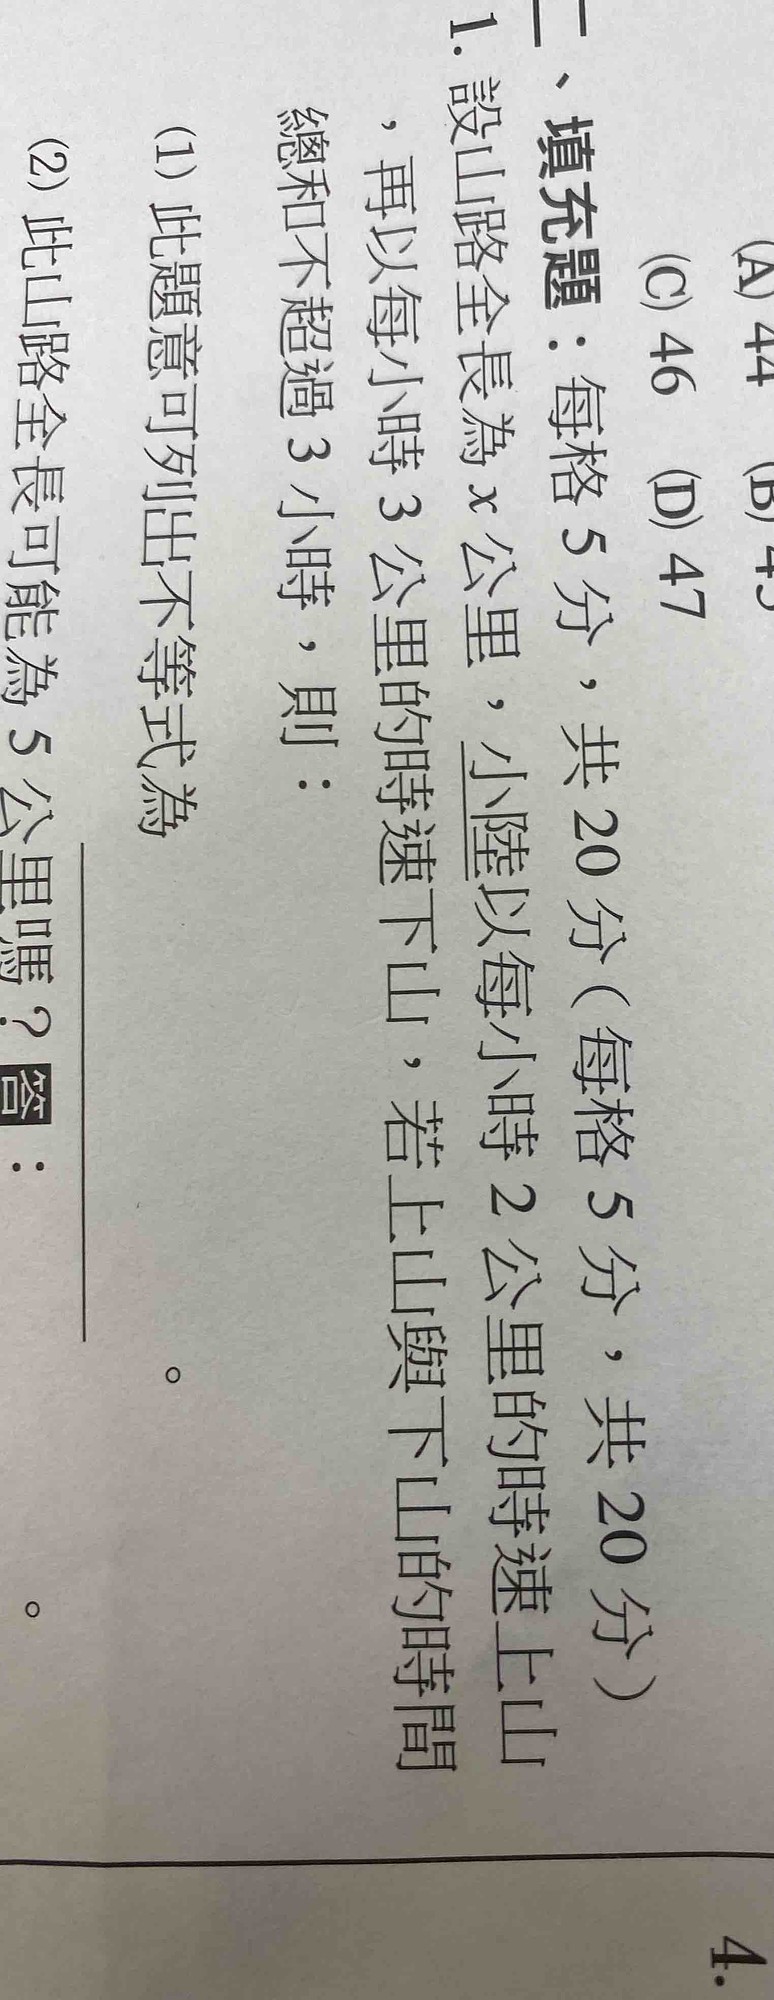 (A) 44 (B) 45
(C) 46 (D) 47
二、填充題：每格 5 分，共 20 分（每格 5 分，共 20 分）
1. 設山路全長為 x 公里，小陸以每小時 2 公里的時速上山
，再以每小時 3 公里的時速下山，若上山與下山的時間
總和不超過 3 小時，則：
(1) 此題意可列出不等式為
。
(2) 此山路全長可能為 5 公里嗎？答：
。
4.